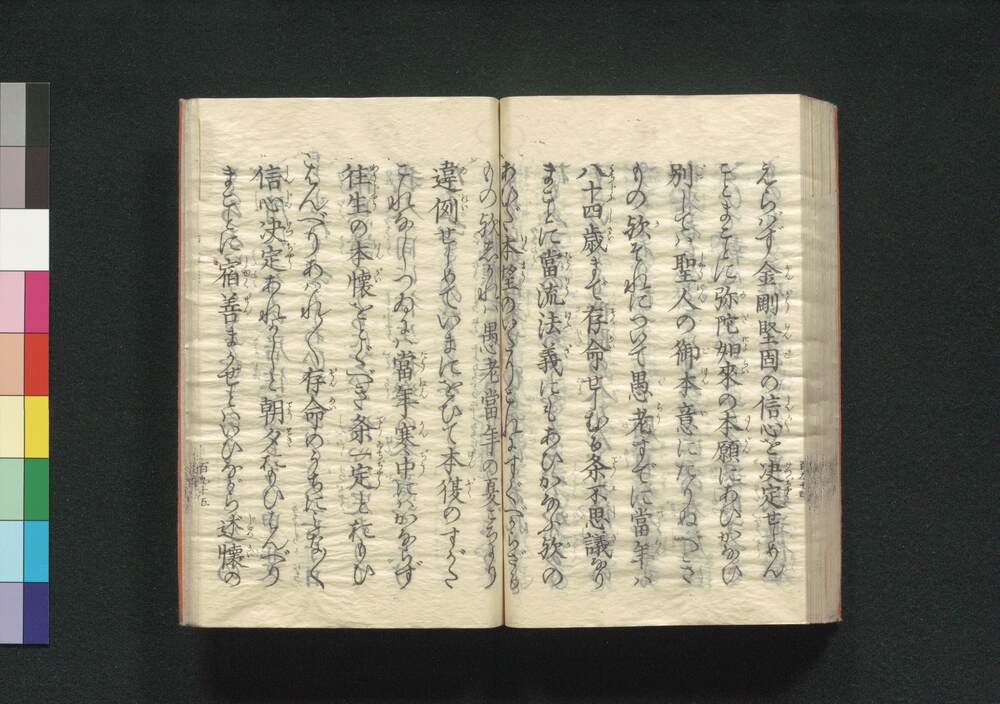 えらばず金剛堅固の信心を决定せしめん
ことまことに弥陀如來の本願にあひかなひ
別しては聖人の御本意にたりぬべきさ
もの歟それについて愚老すでに當年は
八十四歳まで存命せしむる条不思議なり
まことに當流法義にもあひかなふ歟の
あひだ本望のいたりこれにすぐべからざる
もの歟しかれば愚老當年の夏ごろより
違例せしめていまにをひて本復のすがた
これなしつゐには當年寒中にはかならず
往生の本懐をとぐべき条一定とおもひ
はんべりあはれ〳〵存命のうちにみな〳〵
信心决定あれかしと朝夕おもひはんべり
まことに宿善まかせとはいひながら述懐の